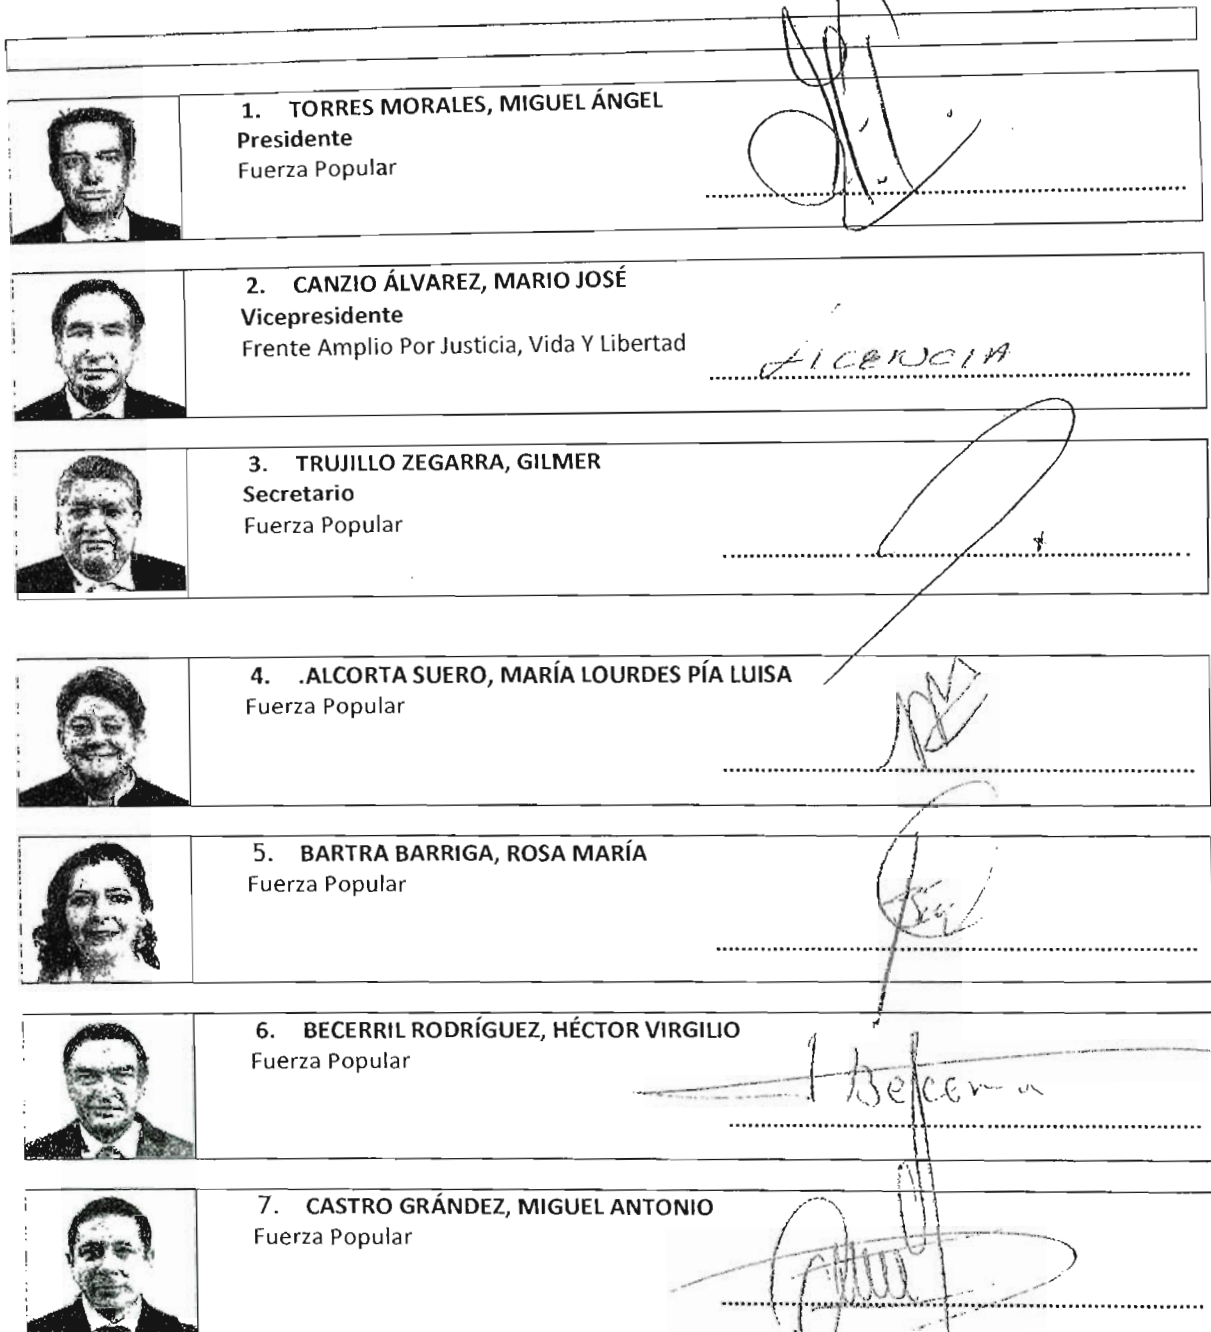 1. TORRES MORALES, MIGUEL ÁNGEL
Presidente
Fuerza Popular
2. CANZIO ÁLVAREZ, MARIO JOSÉ
Vicepresidente
Frente Amplio Por Justicia, Vida Y Libertad
LICENCIA
3. TRUJILLO ZEGARRA, GILMER
Secretario
Fuerza Popular
4. .ALCORTA SUERO, MARÍA LOURDES PÍA LUISA
Fuerza Popular
5. BARTRA BARRIGA, ROSA MARÍA
Fuerza Popular
6. BECERRIL RODRÍGUEZ, HÉCTOR VIRGILIO
Fuerza Popular
7. CASTRO GRÁNDEZ, MIGUEL ANTONIO
Fuerza Popular